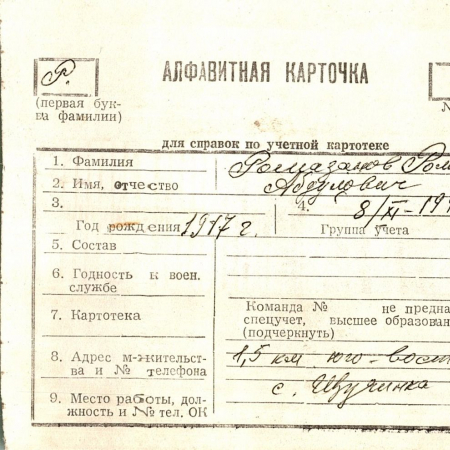 Р.
АЛФАВИТНАЯ КАРТОЧКА
(первая бук-
ва фамилии)
№
для справок по учетной картотеке
1. Фамилия
Ромазанов Ром
2. Имя, отчество
Абдулович
3.
Год рождения 1917 г.
4. 8/XI-19
Группа учета
5. Состав
6. Годность к воен.
службе
7. Картотека
Команда № не предна
спецучет, высшее образован
(подчеркнуть)
8. Адрес м-жительст-
ва и № телефона
1,5 км юго-вост
с. Щучинка
9. Место работы, дол-
жность и № тел. ОК